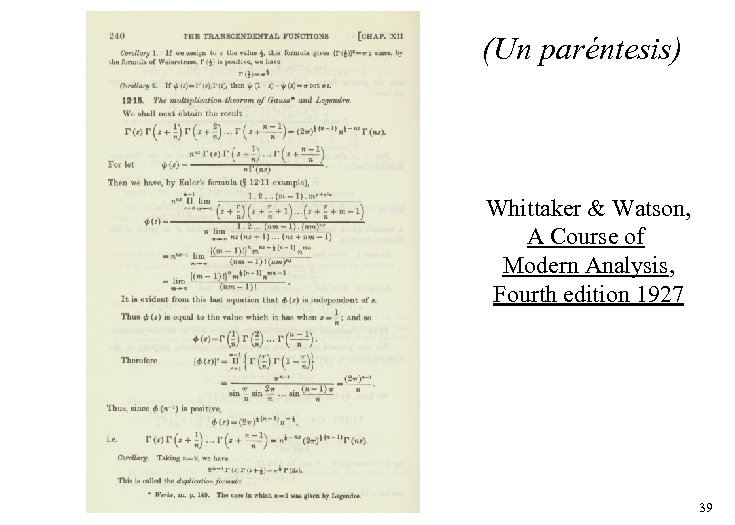 240 THE TRANSCENDENTAL FUNCTIONS [CHAP. XII
Corollary 1. If we assign to z the value ½, this formula gives {Γ(½)}²=π; since, by
the formula of Weierstrass, Γ(½) is positive, we have
Γ(½)=π^½.
Corollary 2. If ψ(z)=Γ′(z)/Γ(z), then ψ(1−z)−ψ(z)=π cot πz.
12·15. The multiplication-theorem of Gauss* and Legendre.
We shall next obtain the result
Γ(z) Γ(z+1/n) Γ(z+2/n) ... Γ(z+(n−1)/n) = (2π)^{½(n−1)} n^{½−nz} Γ(nz).
For let φ(z) = n^{nz} Γ(z) Γ(z+1/n) ... Γ(z+(n−1)/n) / nΓ(nz).
Then we have, by Euler's formula (§ 12·11 example),
It is evident from this last equation that φ(z) is independent of z.
Thus φ(z) is equal to the value which it has when z=1/n; and so
φ(z)=Γ(1/n) Γ(2/n) ... Γ((n−1)/n).
Therefore {φ(z)}² = ∏_{r=1}^{n−1} {Γ(r/n) Γ(1−r/n)}
= π^{n−1} / (sin π/n sin 2π/n ... sin (n−1)π/n) = (2π)^{n−1}/n.
Thus, since φ(n⁻¹) is positive,
φ(z)=(2π)^{½(n−1)} n^{−½},
i.e. Γ(z) Γ(z+1/n) ... Γ(z+(n−1)/n) = n^{½−nz} (2π)^{½(n−1)} Γ(nz).
Corollary. Taking n=2, we have
2^{2z−1} Γ(z) Γ(z+½)=π^½ Γ(2z).
This is called the duplication formula.
* Werke, III. p. 149. The case in which n=2 was given by Legendre.
(Un paréntesis)
Whittaker & Watson,
A Course of
Modern Analysis,
Fourth edition 1927
39